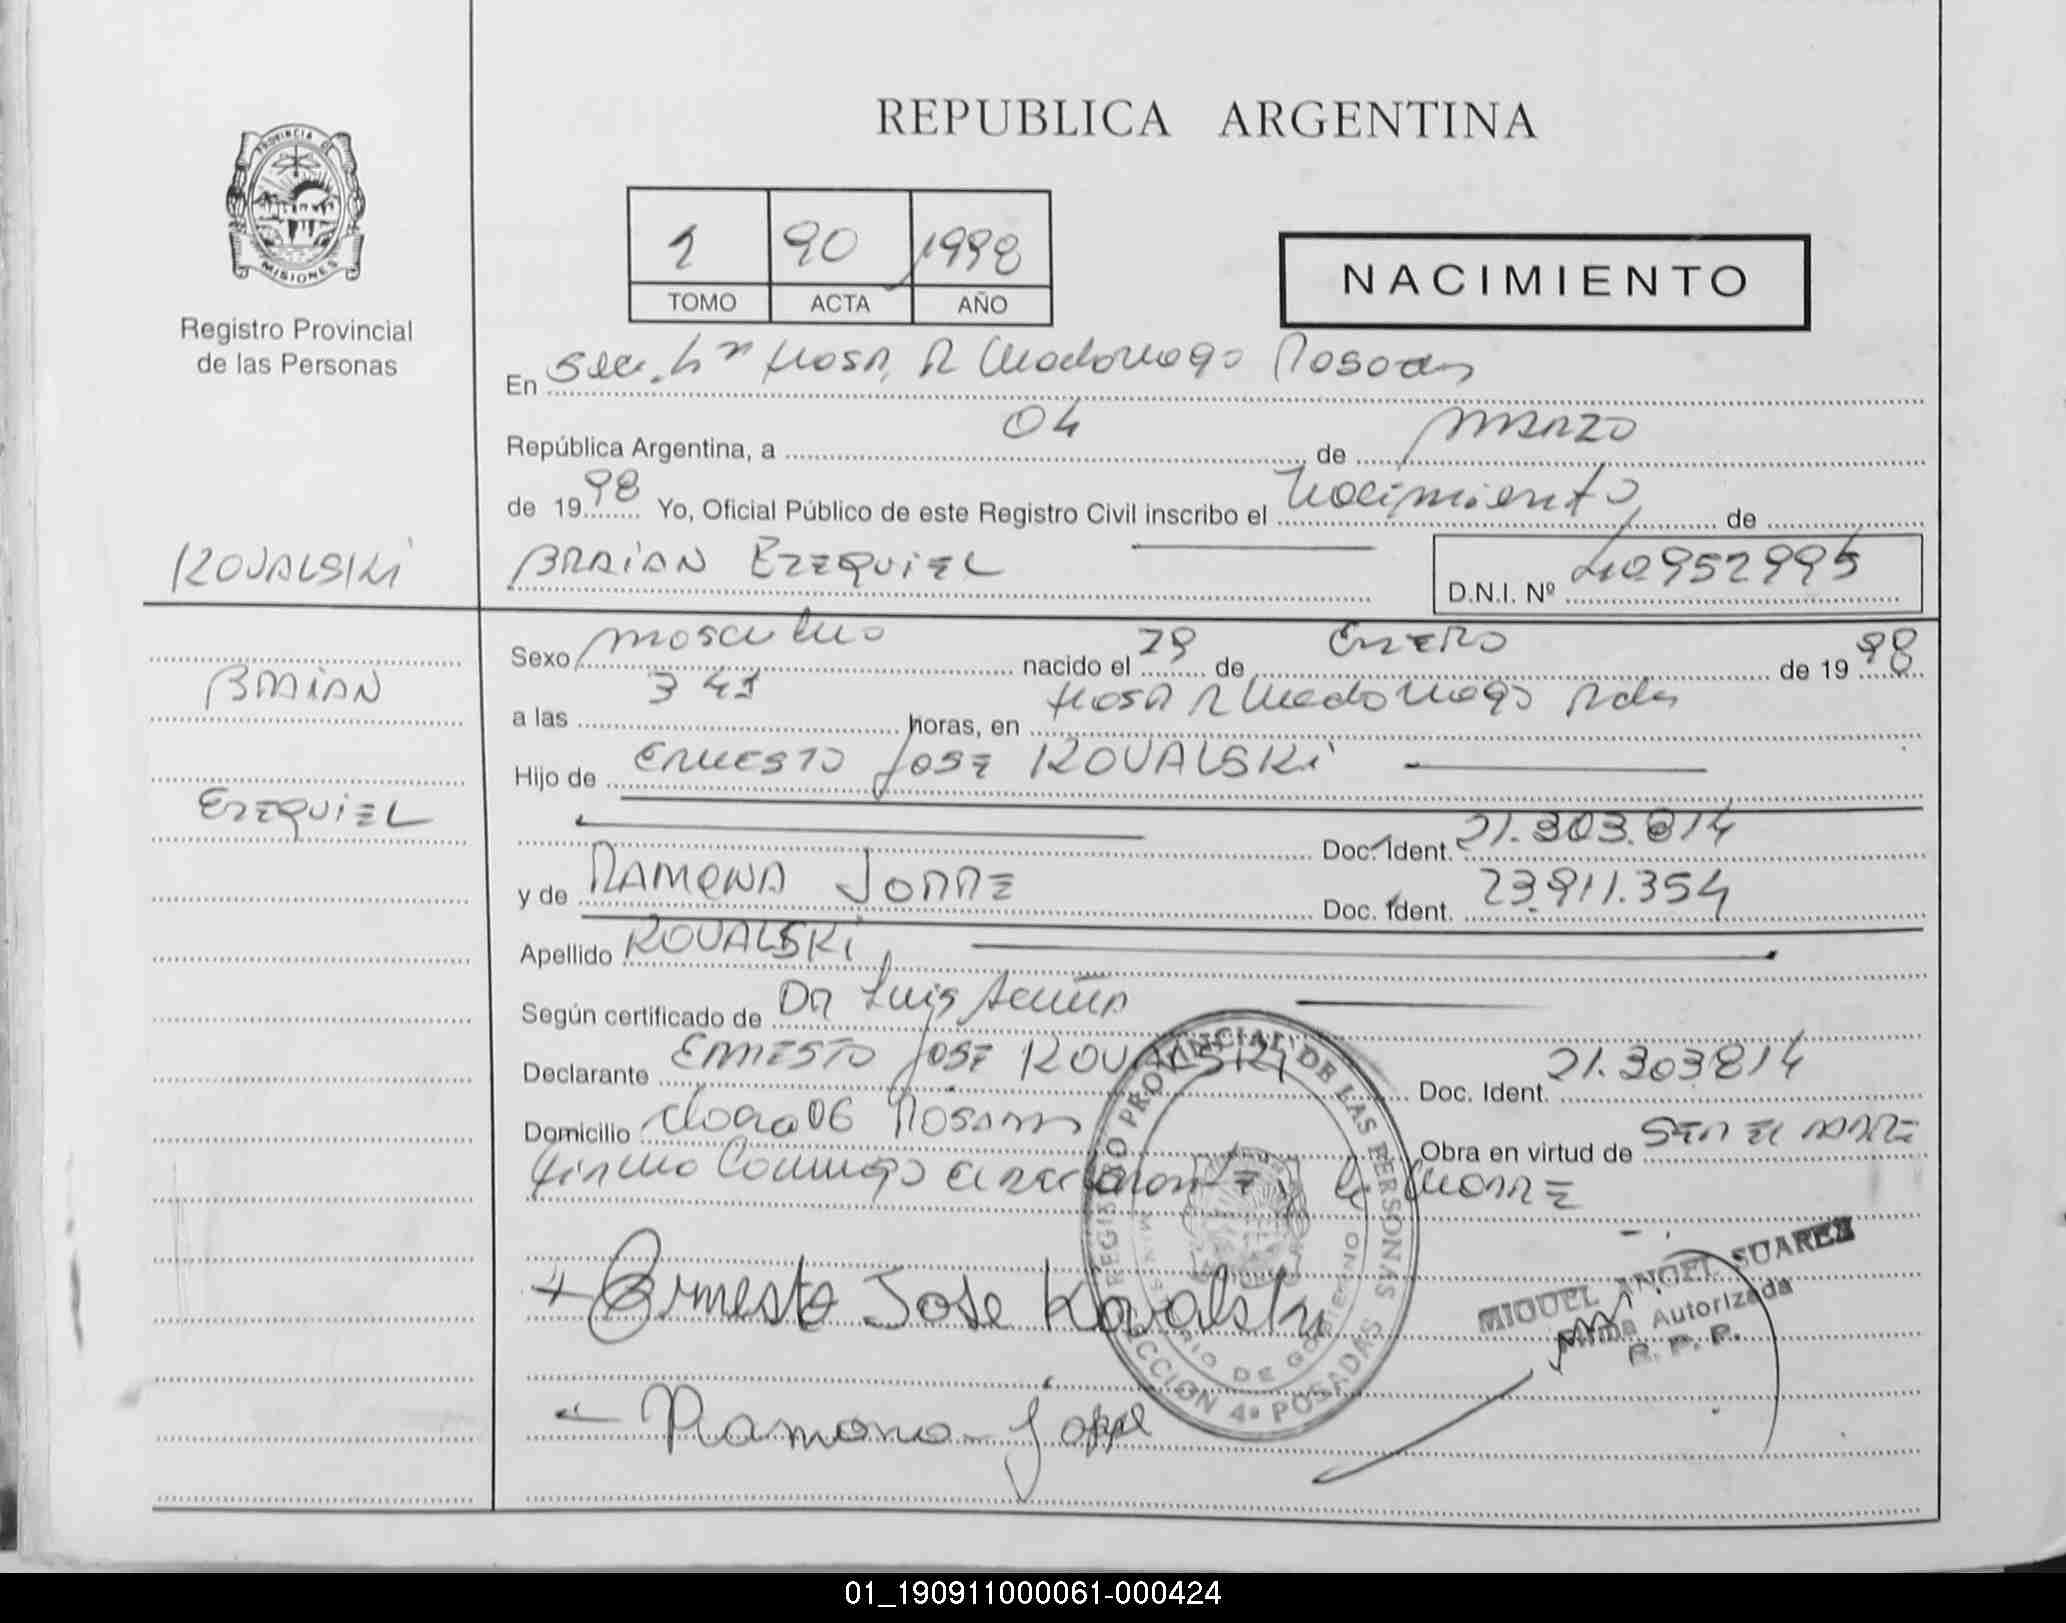 PROVINCIA DE
MISIONES
Registro Provincial
de las Personas
REPUBLICA ARGENTINA
1 90 1998
TOMO ACTA AÑO
NACIMIENTO
En Secc. 4ª Hosp. R Madariaga Posadas
República Argentina, a 04 de MARZO
de 1998 Yo, Oficial Público de este Registro Civil inscribo el Nacimiento de
KOVALSKI
BRAIAN EZEQUIEL D.N.I. Nº 40952995
BRAIAN
EZEQUIEL
Sexo masculino nacido el 29 de ENERO de 1998
a las 3 41 horas, en Hosp R Madariaga Pdas
Hijo de ERNESTO JOSE KOVALSKI
Doc. Ident. 21.303.814
y de RAMONA JORRE Doc. Ident. 23.911.354
Apellido KOVALSKI
Según certificado de DR Luis Acuña
Declarante ERNESTO JOSE KOVALSKI Doc. Ident. 21.303814
Domicilio Posadas Obra en virtud de SER EL PADRE
Firma Conmigo el declarante y la MADRE
Ernesto Jose Kovalski
Ramona Jorre
REGISTRO PROVINCIAL DE LAS PERSONAS
MINISTERIO DE GOBIERNO
SECCION 4ª POSADAS
MIGUEL ANGEL SUAREZ
Firma Autorizada
R. P. P.
01_190911000061-000424